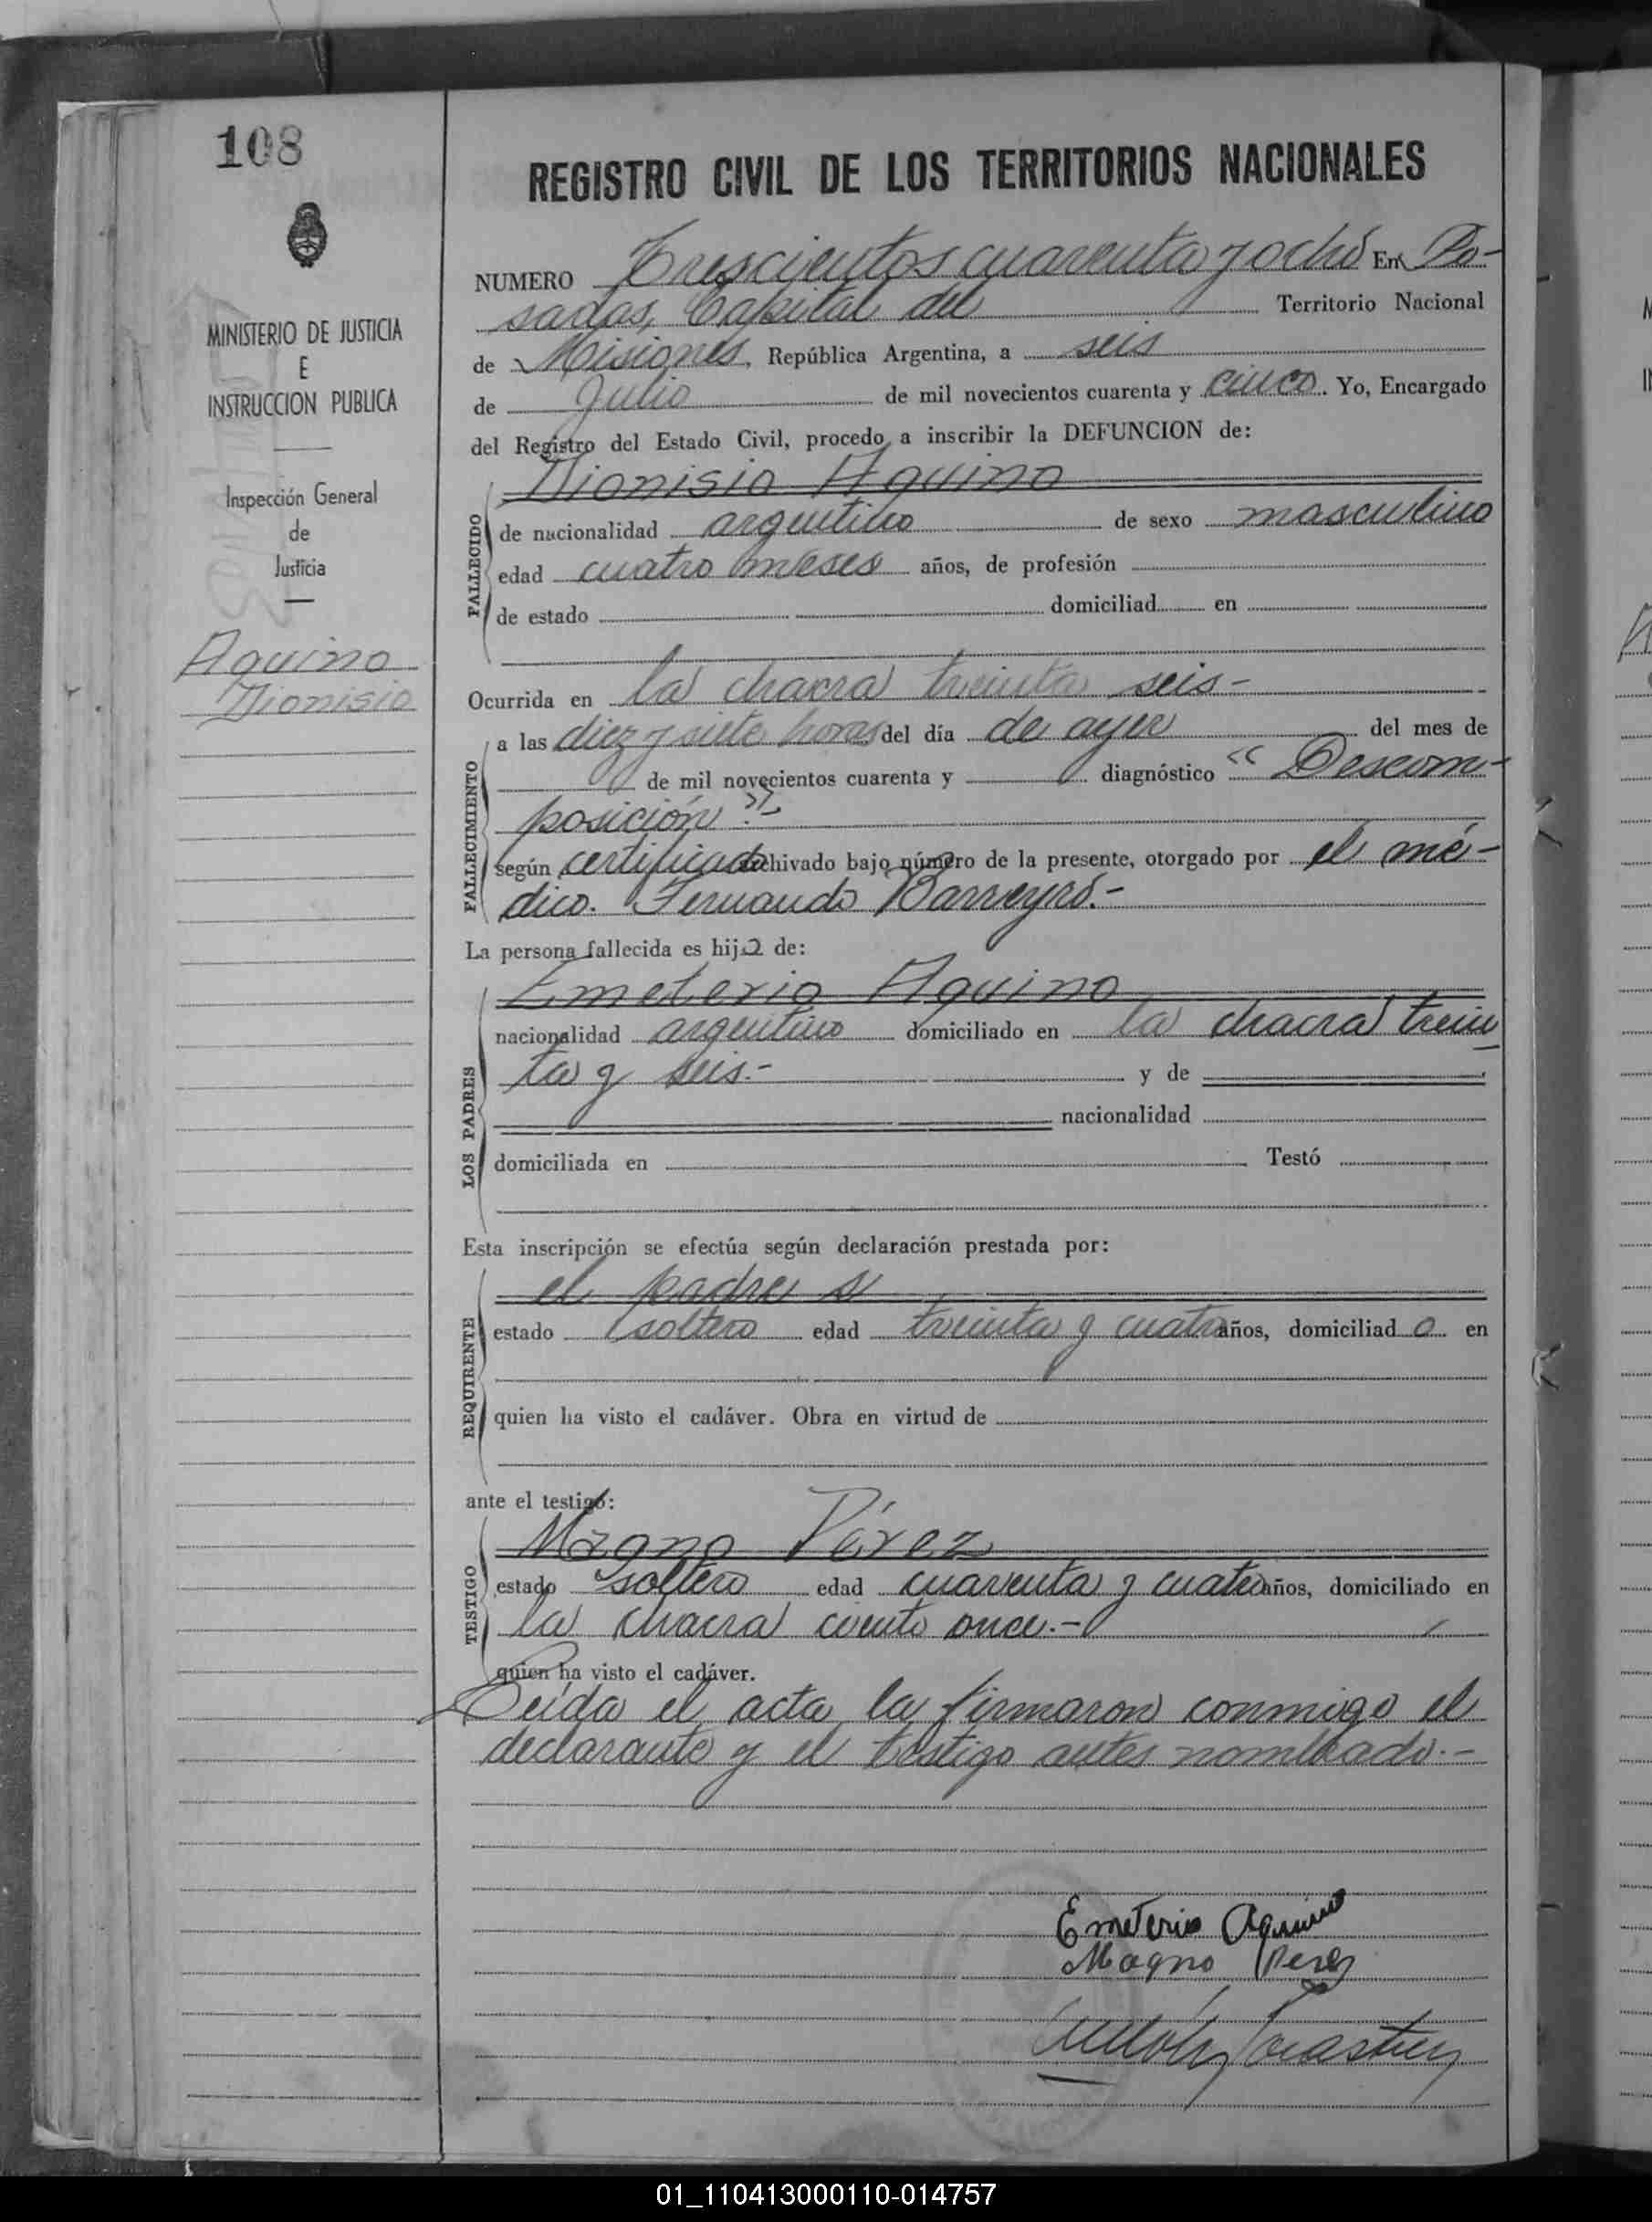 108
MINISTERIO DE JUSTICIA
E
INSTRUCCION PUBLICA
Inspección General
de
Justicia
Aquino
Dionisio
REGISTRO CIVIL DE LOS TERRITORIOS NACIONALES
NUMERO Trescientos cuarenta y ocho En Po-
sadas, Capital del Territorio Nacional
de Misiones, República Argentina, a seis
de Julio de mil novecientos cuarenta y cinco. Yo, Encargado
del Registro del Estado Civil, procedo a inscribir la DEFUNCION de:
Dionisio Aquino
FALLECIDO
de nacionalidad argentino de sexo masculino
edad cuatro meses años, de profesión
de estado domiciliad en
Ocurrida en la chacra treinta seis-
a las diez y siete horas del día de ayer del mes de
FALLECIMIENTO
de mil novecientos cuarenta y diagnóstico "Descom-
posición".-
según certificado archivado bajo número de la presente, otorgado por el mé-
dico. Fernando Barreyro.-
La persona fallecida es hijo de:
Emeterio Aquino
LOS PADRES
nacionalidad argentino domiciliado en la chacra trein
ta y seis.- y de
nacionalidad
domiciliada en Testó
Esta inscripción se efectúa según declaración prestada por:
el padre
REQUIRENTE
estado soltero edad treinta y cuatro años, domiciliado en
quien ha visto el cadáver. Obra en virtud de
ante el testigo:
Magno Pérez
TESTIGO
estado soltero edad cuarenta y cuatro años, domiciliado en
la chacra ciento once.-
quien ha visto el cadáver.
Leída el acta la firmaron conmigo el
declarante y el testigo antes nombrado.-
Emeterio Aquino
Magno Perez
01_110413000110-014757